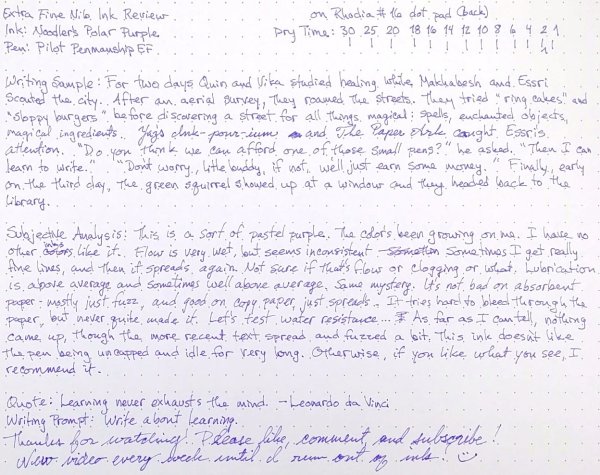 Extra Fine Nib Ink Review on Rhodia #16 dot pad (back)
Ink: Noodler's Polar Purple Dry Time: 30 25 20 18 16 14 12 10 8 6 4 2 1
Pen: Pilot Penmanship EF
Writing Sample: For two days, Quin and Vika studied healing while Makhabesh and Essri
scouted the city. After an aerial survey, they roamed the streets. They tried "ring cakes" and
"sloppy burgers" before discovering a street for all things magical: spells, enchanted objects,
magical ingredients. Yag's Ink-pour-ium and The Paper Ark caught Essri's
attention. "Do you think we can afford one of those small pens?" he asked. "Then I can
learn to write." "Don't worry, little buddy, if not, we'll just earn some money." Finally, early
on the third day, the green squirrel showed up at a window and they headed back to the
library.
Subjective Analysis: This is a sort of pastel purple. The color's been growing on me. I have no
other inks like it. Flow is very wet, but seems inconsistent. Sometimes I get really
fine lines, and then it spreads again. Not sure if that's flow or clogging or what. Lubrication
is above average and sometimes well above average. Same mystery. It's not bad on absorbent
paper - mostly just fuzz, and good on copy paper, just spreads. It tries hard to bleed through the
paper, but never quite made it. Let's test water resistance... As far as I can tell, nothing
came up, though the more recent text spread and fuzzed a bit. This ink doesn't like
the pen being uncapped and idle for very long. Otherwise, if you like what you see, I
recommend it.
Quote: Learning never exhausts the mind. - Leonardo da Vinci
Writing Prompt: Write about learning.
Thanks for watching! Please like, comment, and subscribe!
New video every week until I run out of inks!